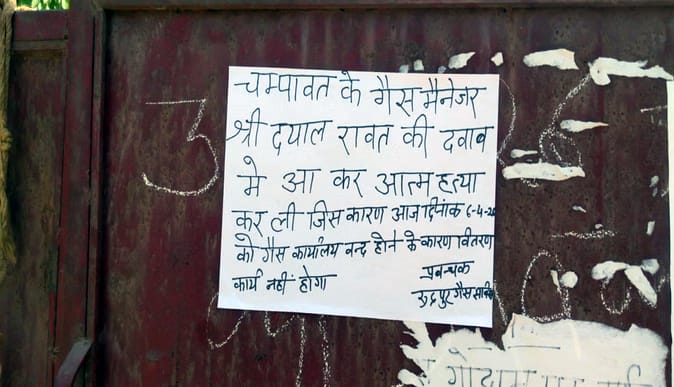 चम्पावत के गैस मैनेजर
श्री दयाल रावत की दवाव
मे आ कर आत्म हत्या
कर ली जिस कारण आज दिनांक 6-4-20
को गैस कार्यालय वन्द होने के कारण वितरण
कार्य नहीं होगा
प्रवन्धक
रुद्रपुर गैस
3
गोदाम